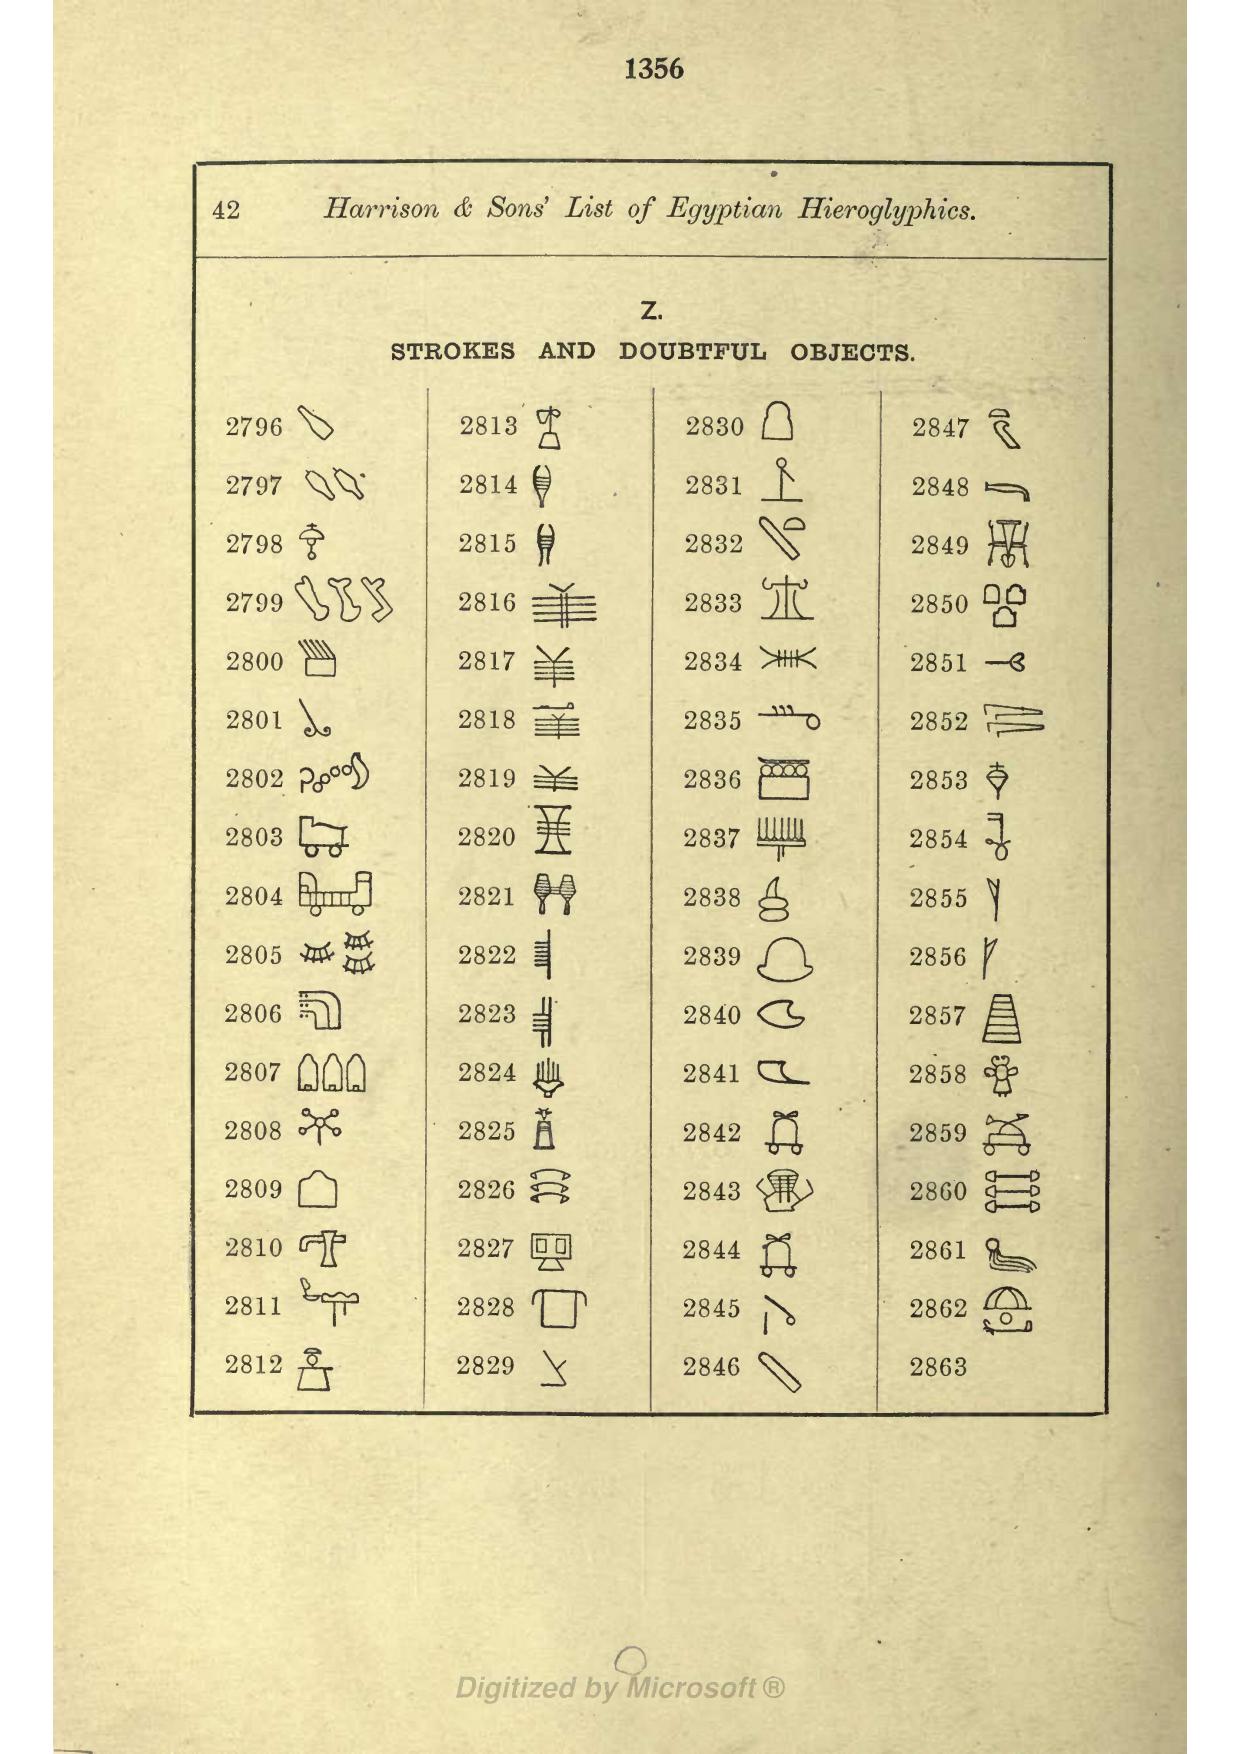 1356
42 Harrison & Sons' List of Egyptian Hieroglyphics.
Z.
STROKES AND DOUBTFUL OBJECTS.
2796
2797
2798
2799
2800
2801
2802
2803
2804
2805
2806
2807
2808
2809
2810
2811
2812
2813
2814
2815
2816
2817
2818
2819
2820
2821
2822
2823
2824
2825
2826
2827
2828
2829
2830
2831
2832
2833
2834
2835
2836
2837
2838
2839
2840
2841
2842
2843
2844
2845
2846
2847
2848
2849
2850
2851
2852
2853
2854
2855
2856
2857
2858
2859
2860
2861
2862
2863
Digitized by Microsoft ®